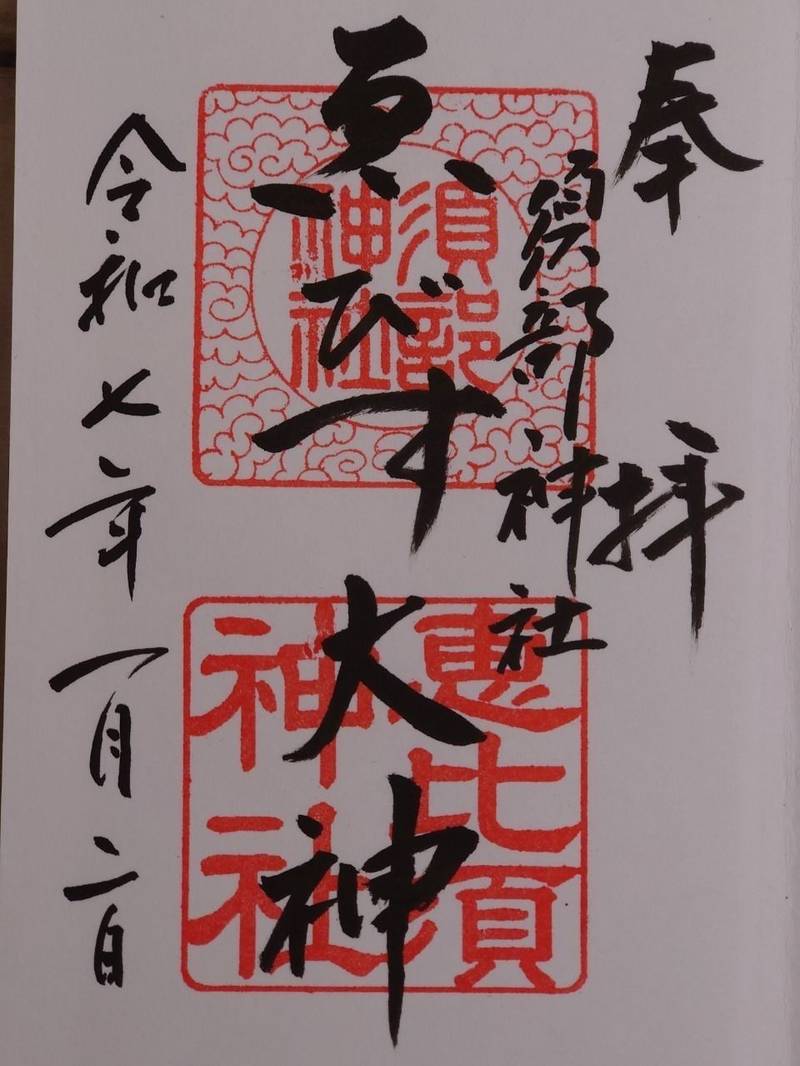 奉拝
須部神社
須部神社
恵びす大神
恵比須神社
令和七年一月二日